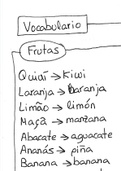 Vocabulario
Frutas
Quiui → Kiwi
Laranja → Naranja
Limão → limón
Maçã → manzana
Abacate → aguacate
Ananás → piña
Banana → banana